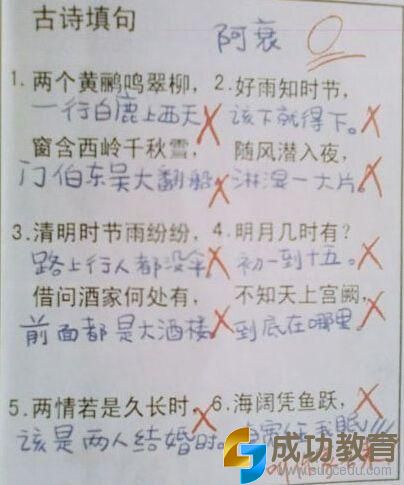 古诗填句
阿衰 0
1. 两个黄鹂鸣翠柳，
一行白鹿上西天
窗含西岭千秋雪，
门伯东吴大翻船
2. 好雨知时节，
该下就得下。
随风潜入夜，
淋湿一大片。
3. 清明时节雨纷纷，
路上行人都没伞
借问酒家何处有，
前面都是大酒楼
4. 明月几时有？
初一到十五。
不知天上宫阙，
到底在哪里
5. 两情若是久长时，
该是两人结婚时。
6. 海阔凭鱼跃，
成功教育
www.sugcedu.com